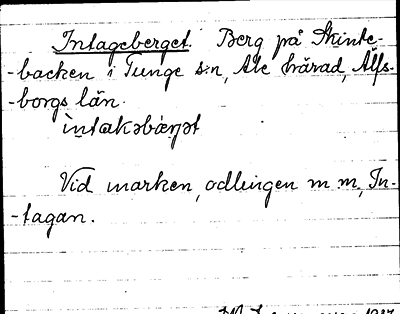 Intageberget. Berg på Skinte-
-backen i Tunge s:n, Ale härad, Älfs-
-borgs län.
ìntakəbæ̀rjət
Vid marken, odlingen m m, In-
-tagan.